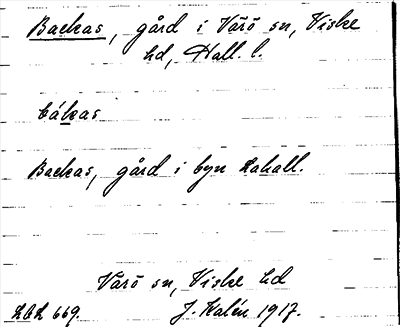 Backas, gård i Värö sn, Viske
hd, Hall. l.
bákas
Backas, gård i byn Lahall.
Värö sn, Viske hd
LAL 669. J. Kalén 1917.